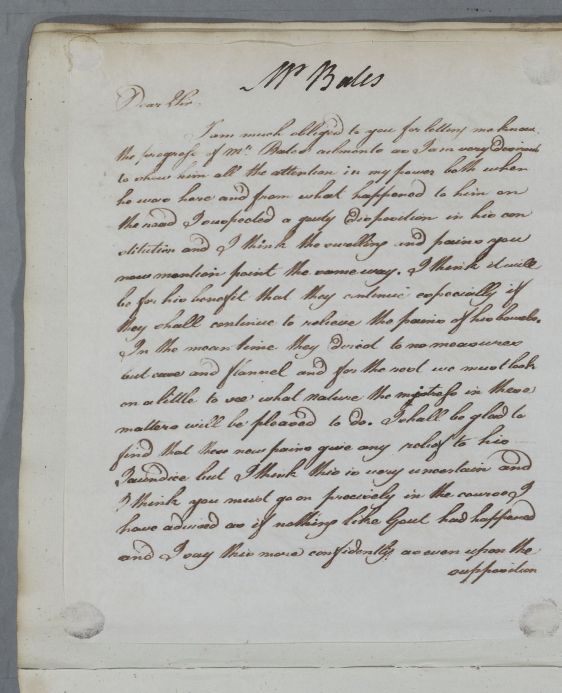 Mr Bales
Dear Sir,
I am much obliged to you for letting me know
the progress of Mr. Bales's ailments as I am very desirous
to show him all the attention in my power both when
he was here and from what happened to him on
the road I suspected a gouty disposition in his con
stitution and I think the swelling and pains you
now mention point the same way. I think it will
be for his benefit that they continue especially if
they shall continue to relieve the pains of his bowels.
In the mean time they direct to no measures
but care and flannel and for the rest we must look
on a little to see what nature the mistress in these
matters will be pleased to do. I shall be glad to
find that these new pains give any relief to his
Jaundice but I think this is very uncertain and
I think you must go on precisely in the course I
have advised as if nothing like Gout had happened
and I say this more confidently, as even upon the
supposition